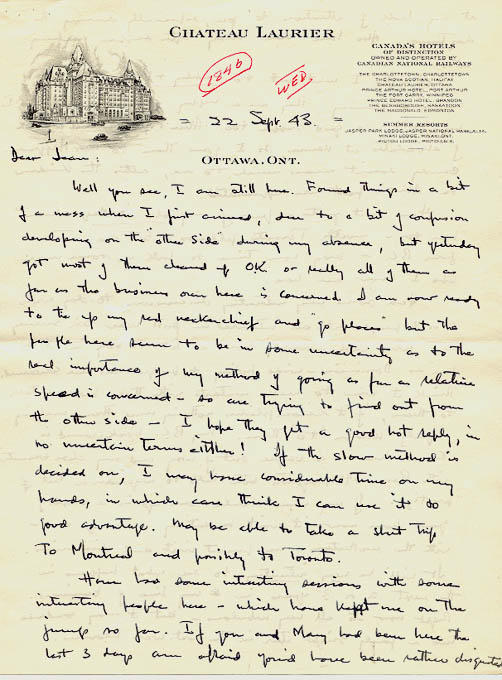 CHATEAU LAURIER
CANADA'S HOTELS
OF DISTINCTION
OWNED AND OPERATED BY
CANADIAN NATIONAL RAILWAYS
THE CHARLOTTETOWN, CHARLOTTETOWN
THE NOVA SCOTIAN, HALIFAX
CHATEAU LAURIER, OTTAWA
PRINCE ARTHUR HOTEL, PORT ARTHUR
THE FORT GARRY, WINNIPEG
PRINCE EDWARD HOTEL, BRANDON
THE BESSBOROUGH, SASKATOON
THE MACDONALD, EDMONTON
SUMMER RESORTS
JASPER PARK LODGE, JASPER NATIONAL PARK, ALTA.
MINAKI LODGE, MINAKI, ONT.
PICTOU LODGE, PICTOU, N.S.
1846
WED
= 22 Sept. 43. =
OTTAWA, ONT.
Dear Jean:
Well you see, I am still here. Found things in a bit
of a mess when I first arrived, due to a bit of confusion
developing on the "other side" during my absence, but yesterday
got most of them cleared up OK. or really all of them as
far as the business over here is concerned. I am now ready
to tie up my red neckerchief and "go places" but the
people here seem to be in some uncertainty as to the
real importance of my method of going as far as relative
speed is concerned - so are trying to find out from
the other side - I hope they get a good hot reply, in
no uncertain terms either! If the slow method is
decided on, I may have considerable time on my
hands, in which case think I can use it to
good advantage. May be able to take a short trip
to Montreal and possibly to Toronto.
Have had some interesting sessions with some
interesting people here - which have kept me on the
jump so far. If you and Mary had been here the
last 3 days am afraid you'd have been rather disgusted